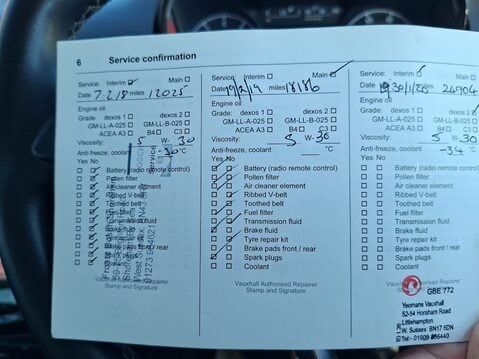 6 Service confirmation
Service: Interim Main
Date 7.2.18 miles 12025
Engine oil
Grade: dexos 1 dexos 2
GM-LL-A-025 GM-LL-B-025
ACEA A3 B4 C3
Viscosity: 5 W- 30
Anti-freeze, coolant -36 °C
Yes No
Battery (radio remote control)
Pollen filter
Air cleaner element
Ribbed V-belt
Toothed belt
Fuel filter
Transmission fluid
Brake fluid
Tyre repair kit
Brake pads front / rear
Spark plugs
Coolant
Vauxhall Authorised Repairer
Stamp and Signature
Service: Interim Main
Date 19/2/19 miles 18186
Engine oil
Grade: dexos 1 dexos 2
GM-LL-A-025 GM-LL-B-025
ACEA A3 B4 C3
Viscosity: 5 W- 30
Anti-freeze, coolant °C
Yes No
Battery (radio remote control)
Pollen filter
Air cleaner element
Ribbed V-belt
Toothed belt
Fuel filter
Transmission fluid
Brake fluid
Tyre repair kit
Brake pads front / rear
Spark plugs
Coolant
Vauxhall Authorised Repairer
Stamp and Signature
Service: Interim Main
Date 30/1/20 miles 24904
Engine oil
Grade: dexos 1 dexos 2
GM-LL-A-025 GM-LL-B-025
ACEA A3 B4 C3
Viscosity: 5 W- 30
Anti-freeze, coolant -34 °C
Yes No
Battery (radio remote control)
Pollen filter
Air cleaner element
Ribbed V-belt
Toothed belt
Fuel filter
Transmission fluid
Brake fluid
Tyre repair kit
Brake pads front / rear
Spark plugs
Coolant
Vauxhall Authorised Repairer
GBE 772
Yeomans Vauxhall
52-54 Horsham Road
Littlehampton
W. Sussex BN17 6DN
Service